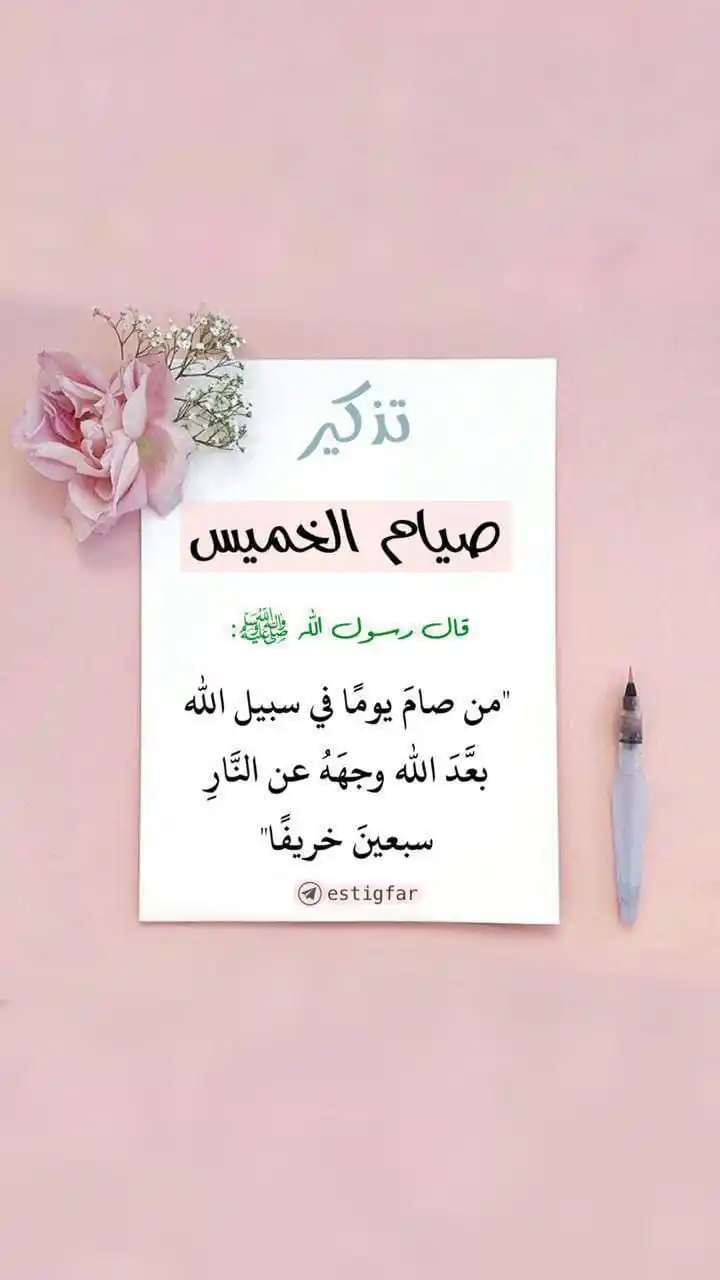 تذكير
صيام الخميس
قال رسول الله ﷺ:
"من صامَ يومًا في سبيل الله
بعَّدَ الله وجهَهُ عن النَّارِ
سبعينَ خريفًا"
estigfar